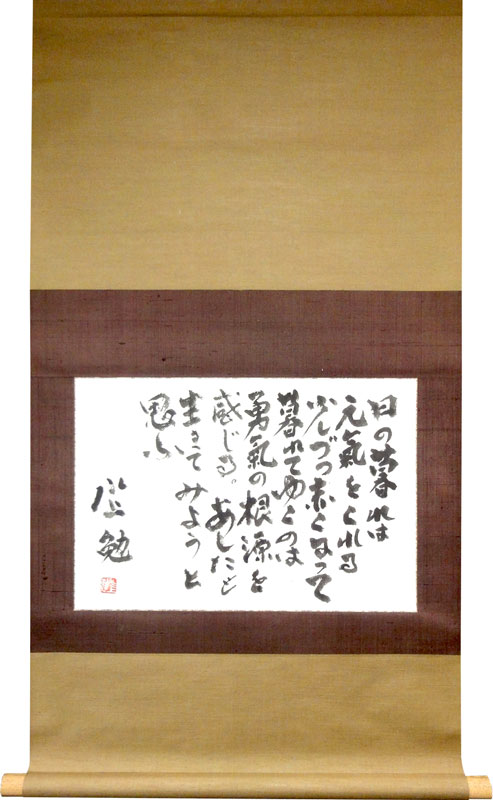 日の暮れは
元氣をくれる
少しづつ赤くなって
暮れてゆくのは
勇氣の根源を
感じる。あしたも
生きてみようと
思ふ
勉